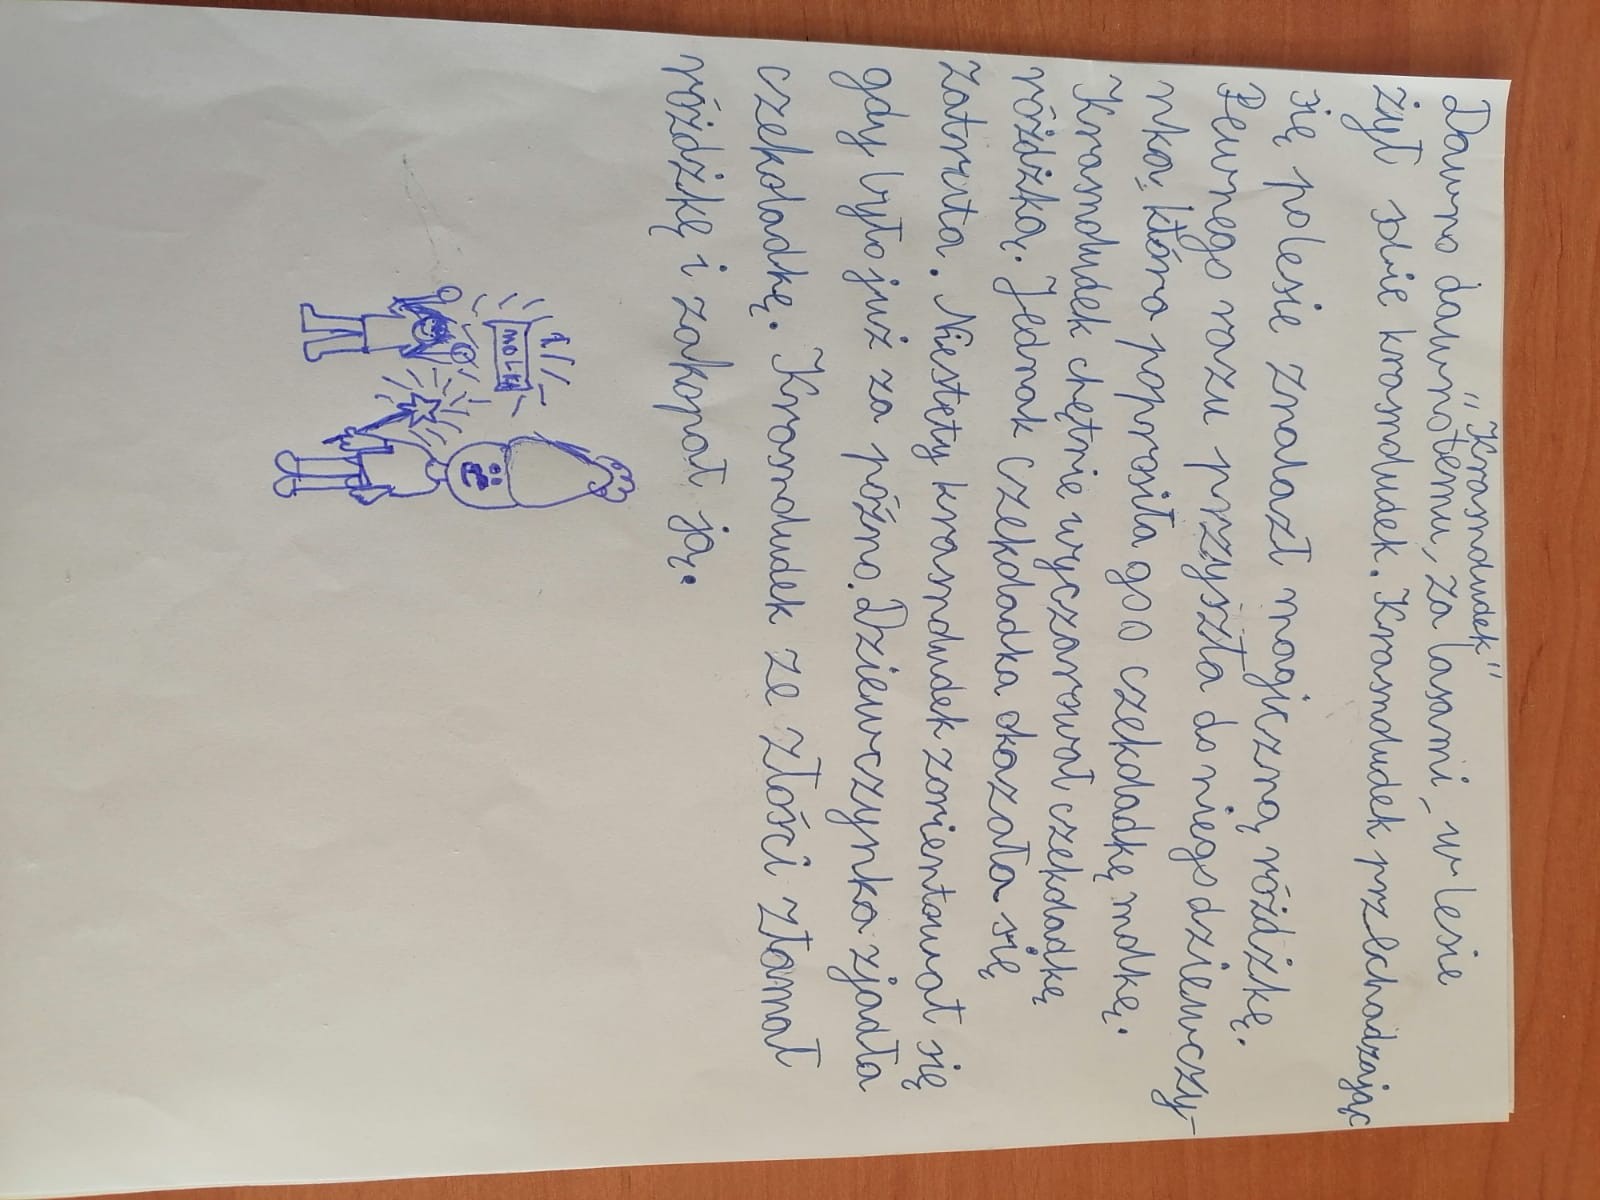 "Krasnoludek"
Dawno dawnotemu, za lasami, w lesie
żył sobie krasnoludek. Krasnoludek przechadzając
się polesie znalazł magiczną różdżkę.
Pewnego razu przyszła do niego dziewczy-
nka, która poprosiła go o czekoladkę molkę.
Krasnoludek chętnie wyczarował czekoladkę
różdżką. Jednak czekoladka okazała się
zatruta. Niestety krasnoludek zorientował się
gdy było już za późno. Dziewczynka zjadła
czekoladkę. Krasnoludek ze złości złamał
różdżkę i zakopał ją.
MOLKA